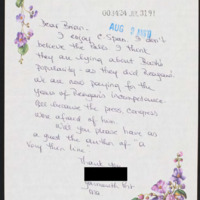 001424 JUL 31 91
AUG 2 1989
Dear Brian,
I enjoy C-Span. I don't
believe the Polls I think
they are lying about Bush's
Popularity - as they did Reagan's.
We are now paying for the
years of Reagan's incompetence
all because the press corps
were afraid of him.
Will you please have as
a guest the author of a
Very thin line
Thank you
Yarmouth Port
Ma